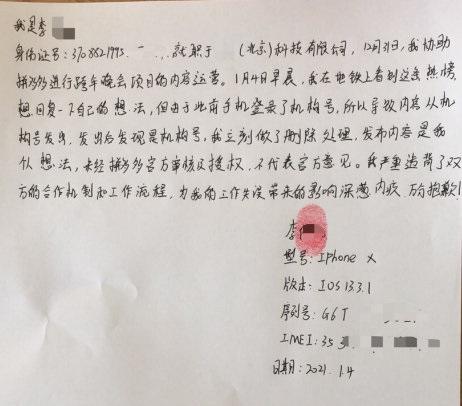 我是李
身份证号：3708821995 就职于 （北京）科技有限公司，12月31日，我协助
拼多多进行跨年晚会项目的内容运营。1月4日早晨，我在地铁上看到这条热榜
想回复一下自己的想法，但由于此前手机登录了机构号，所以导致内容从机
构号发出，发出后发现是机构号，我立刻做了删除处理，发布内容是我
个人想法，未经拼多多官方审核及授权，不代表官方意见。我严重违背了双
方的合作机制和工作流程，为我的工作失误带来的影响深感内疚，万分抱歉！
李
型号：IPhone X
版本：IOS 13.3.1
序列号：G6T
IMEI：35 3
日期：2021.1.4